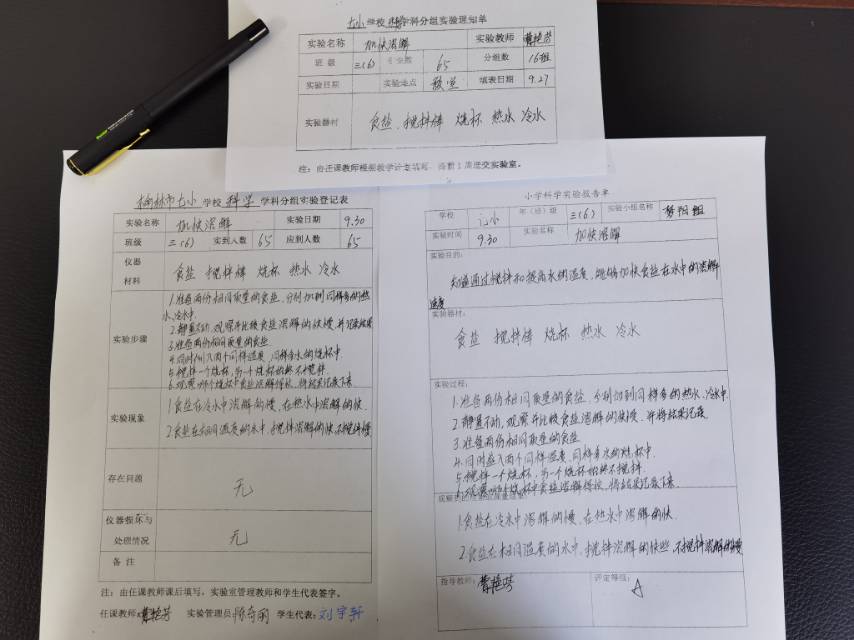 七小学校科学学科分组实验通知单
实验名称 加快溶解 实验教师
班级 三(6) 65 分组数 16组
实验日期 实验地点 教室 填表日期 9.27
实验器材 食盐、搅拌棒 烧杯 热水 冷水
注：由任课教师根据教学计划填写，提前1周送交实验室。
榆林市七小学校科学学科分组实验登记表
实验名称 加快溶解 实验日期 9.30
班级 三(6) 实到人数 65 应到人数 65
仪器
材料 食盐 搅拌棒 烧杯 热水 冷水
实验步骤
1.准备两份相同质量的食盐，分别加到同样多的热
水、冷水中.
2.静置不动，观察并比较食盐溶解的快慢，并记录结果
3.准备两份相同质量的食盐
4.同时倒入两个同样温度，同样多水的烧杯中.
5.搅拌一个烧杯，另一个烧杯始终不搅拌.
6.观察哪个烧杯中食盐溶解得快，将结果记录下来
实验现象
1.食盐在冷水中溶解的慢，在热水中溶解的快.
2.食盐在相同温度的水中，搅拌溶解的快 不搅拌慢
存在问题 无
仪器损坏与
处理情况 无
备注
注：由任课教师课后填写，实验室管理教师和学生代表签字。
任课教师: 实验管理员: 学生代表: 刘宇轩
小学科学实验报告单
学校 七小 年（班）级 三(6) 实验小组名称 梦阳组
实验时间 9.30 实验名称 加快溶解
实验目的:
知道通过搅拌和提高水的温度，能够加快食盐在水中的溶解
速度
实验器材:
食盐 搅拌棒 烧杯 热水 冷水
实验过程:
1.准备两份相同质量的食盐，分别加到同样多的热水、冷水中.
2.静置不动，观察并比较食盐溶解的快慢，并将结果记录
3.准备两份相同质量的食盐
4.同时盛入两个同样温度，同样多水的烧杯中.
5.搅拌一个烧杯，另一个烧杯始终不搅拌.
6.观察哪个烧杯中食盐溶解得快，将结果记录下来
1.食盐在冷水中溶解的慢，在热水中溶解的快.
2.食盐在相同温度的水中，搅拌溶解的快些，不搅拌溶解的慢
指导教师: 评定等级: A